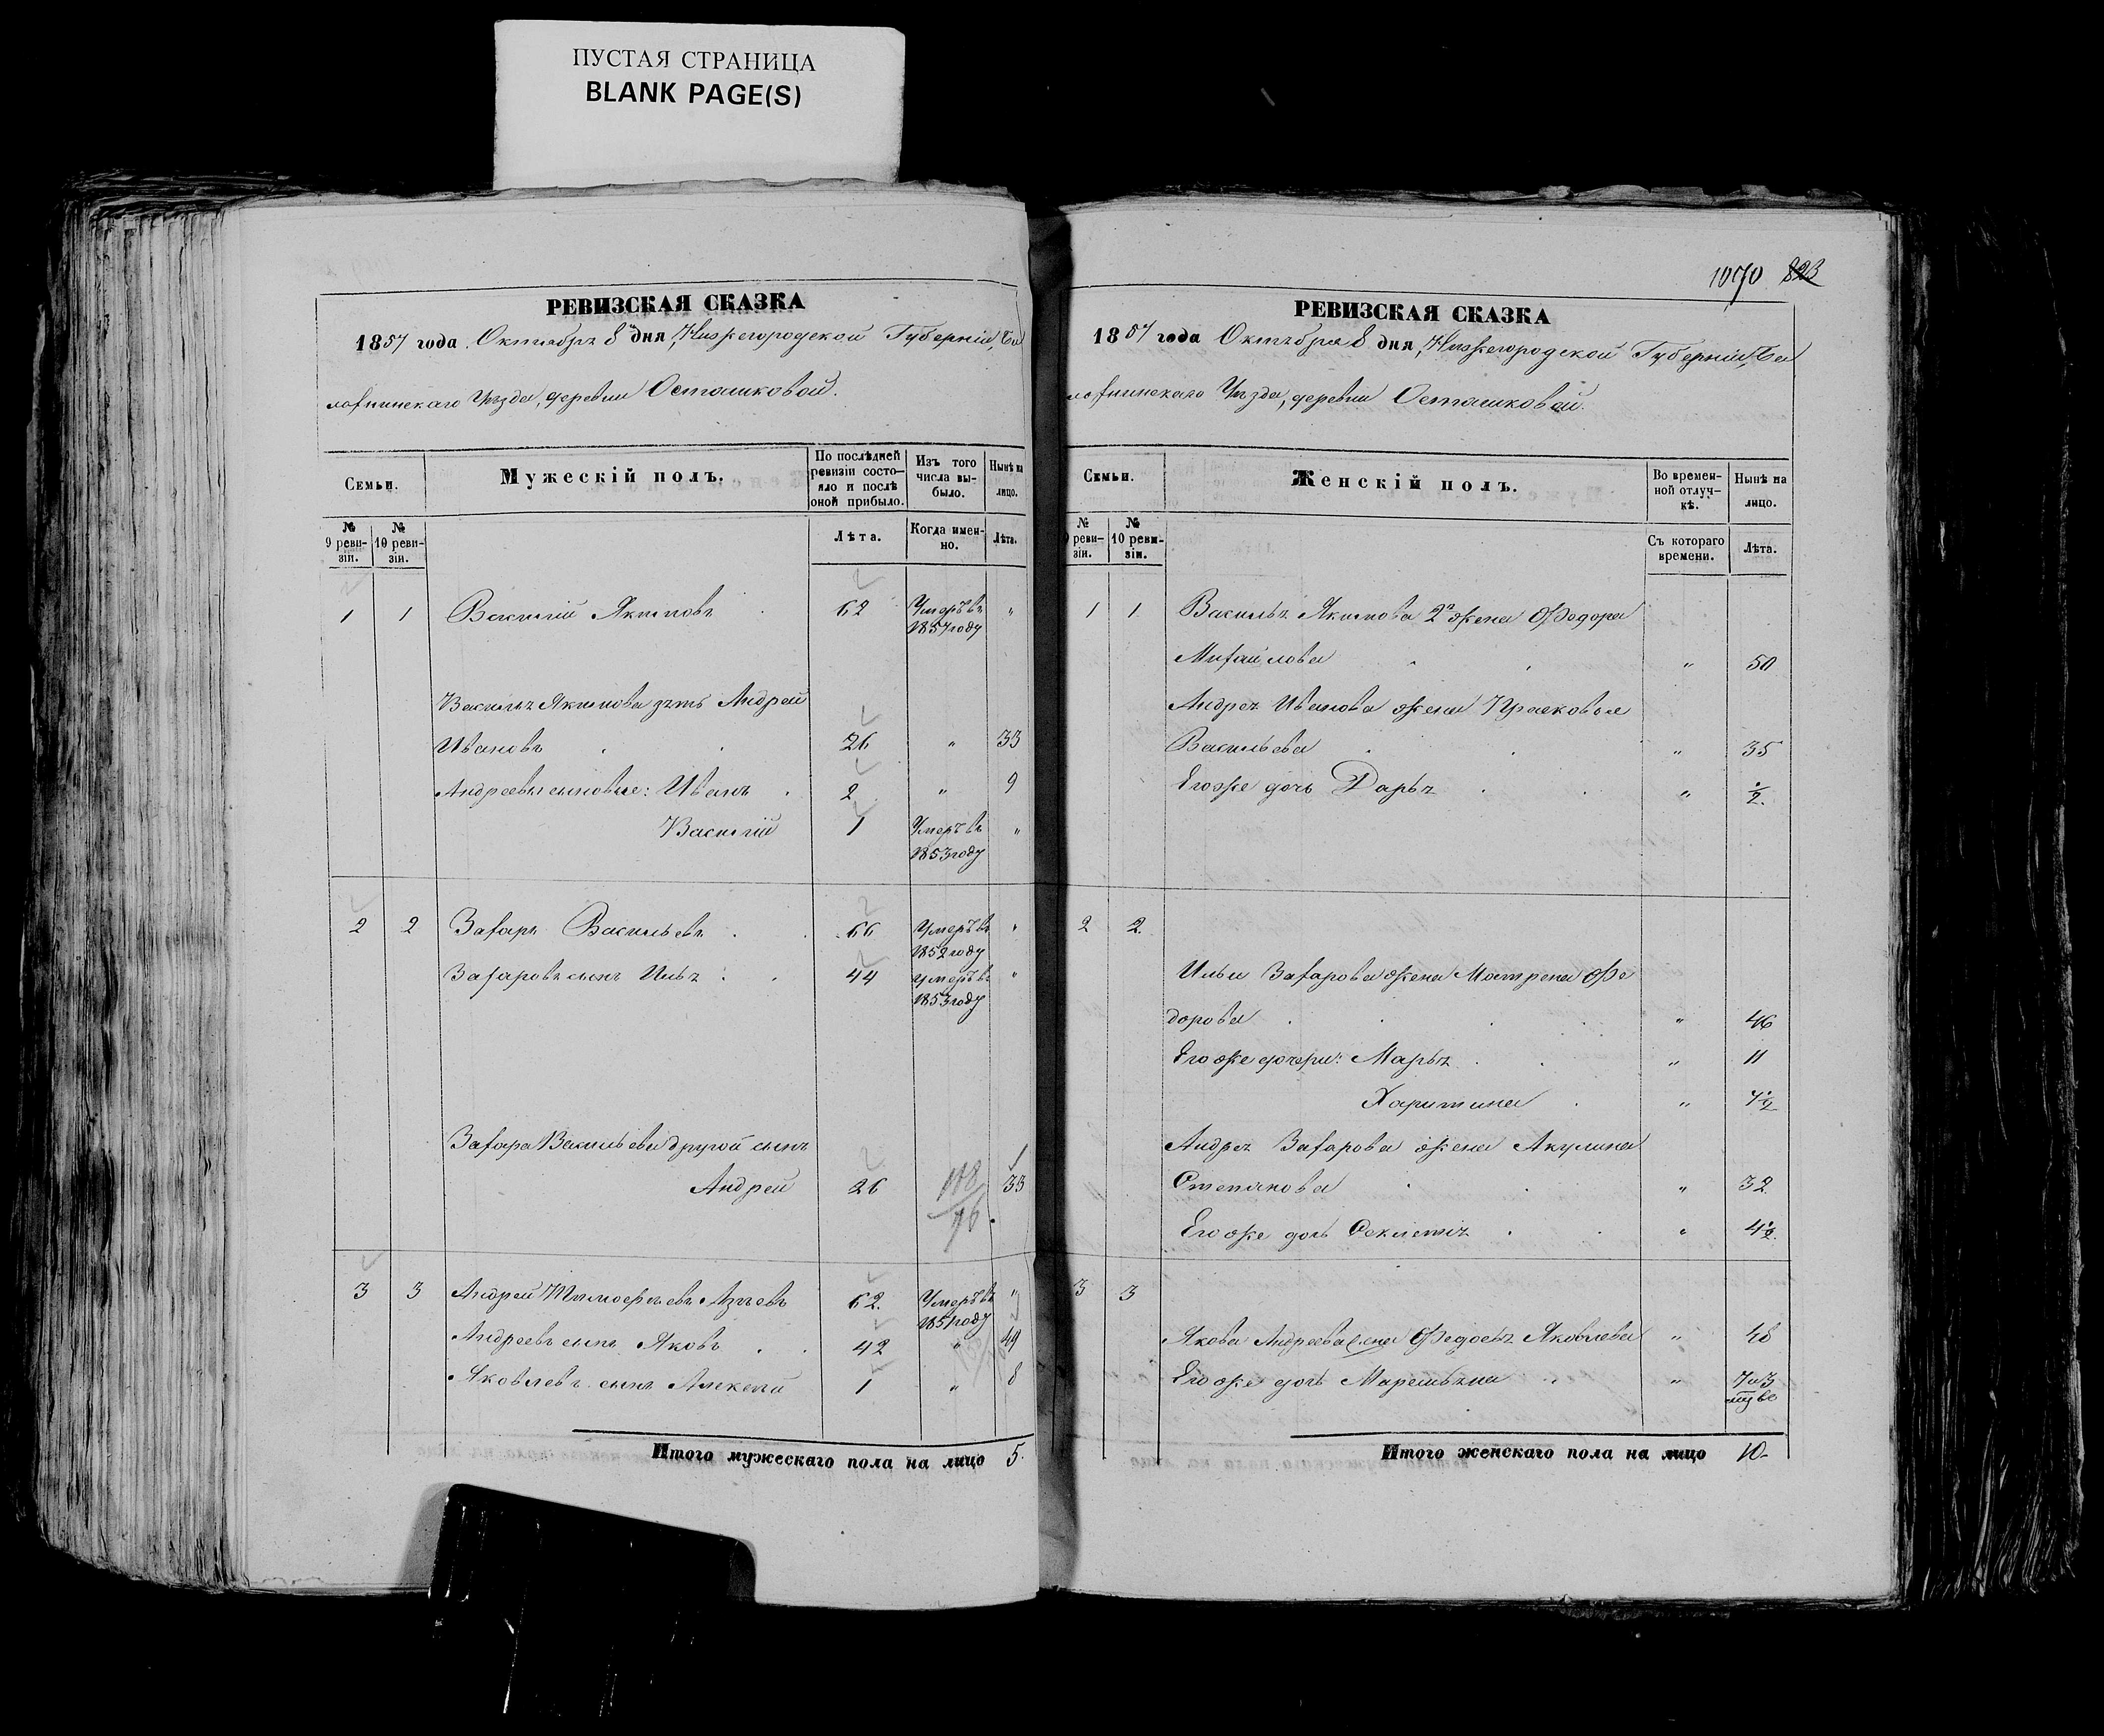 ПУСТАЯ СТРАНИЦА
BLANK PAGE(S)
РЕВИЗСКАЯ СКАЗКА
1857 года Октября 8 дня, Нижегородской Губерніи, Ба
лахнинскаго Уѣзда, деревни Осташковой.
Семьи.
Мужескій полъ.
По послѣдней
ревизіи состо-
яло и послѣ
оной прибыло.
Изъ того
числа вы-
было.
Нынѣ на
лицо.
№
9 реви-
зіи.
№
10 реви-
зіи.
Лѣта.
Когда имен-
но.
Лѣта.
1 1 Василій Якимовъ 62 Умеръ въ "
1857 году
Василья Якимова зять Андрей
Ивановъ 26 " 33
Андреевы сыновье: Иванъ 2 " 9
Василій 1 Умеръ въ "
1853 году
2 2 Захаръ Васильевъ 66 Умеръ въ "
1852 году
Захаровъ сынъ Илья 44 Умеръ въ "
1853 году
Захара Васильева другой сынъ
Андрей 26 33
3 3 Андрей Тимофеевъ 62 Умеръ въ "
1851 году
Андреевъ сынъ Яковъ 42 " 49
Яковлевъ сынъ Алексей 1 " 8
Итого мужескаго пола на лицо 5.
1070 823
РЕВИЗСКАЯ СКАЗКА
1857 года Октября 8 дня, Нижегородской Губерніи, Ба
лахнинскаго Уѣзда, деревни Осташковой.
Семьи.
Женскій полъ.
Во времен-
ной отлуч-
кѣ.
Нынѣ на
лицо.
№
реви-
зіи.
№
10 реви-
зіи.
Съ котораго
времени.
Лѣта.
1 1 Василья Якимова 2я жена Федора
Михайлова " 50
Андрея Иванова жена Прасковья
Васильева " 35
Егоже дочь Дарья " 1/2.
2 2.
Ильи Захарова жена Матрена Фе
дорова " 46
Егоже дочери: Марья " 11
Харитина " 7 1/2
Андрея Захарова жена Акулина
Степанова " 32
Егоже дочь Феклетія " 4 1/2.
3 3
Якова Андреева жена Федосья Яковлева " 48
Егоже дочь " 7 и 3
Итого женскаго пола на лицо 10.